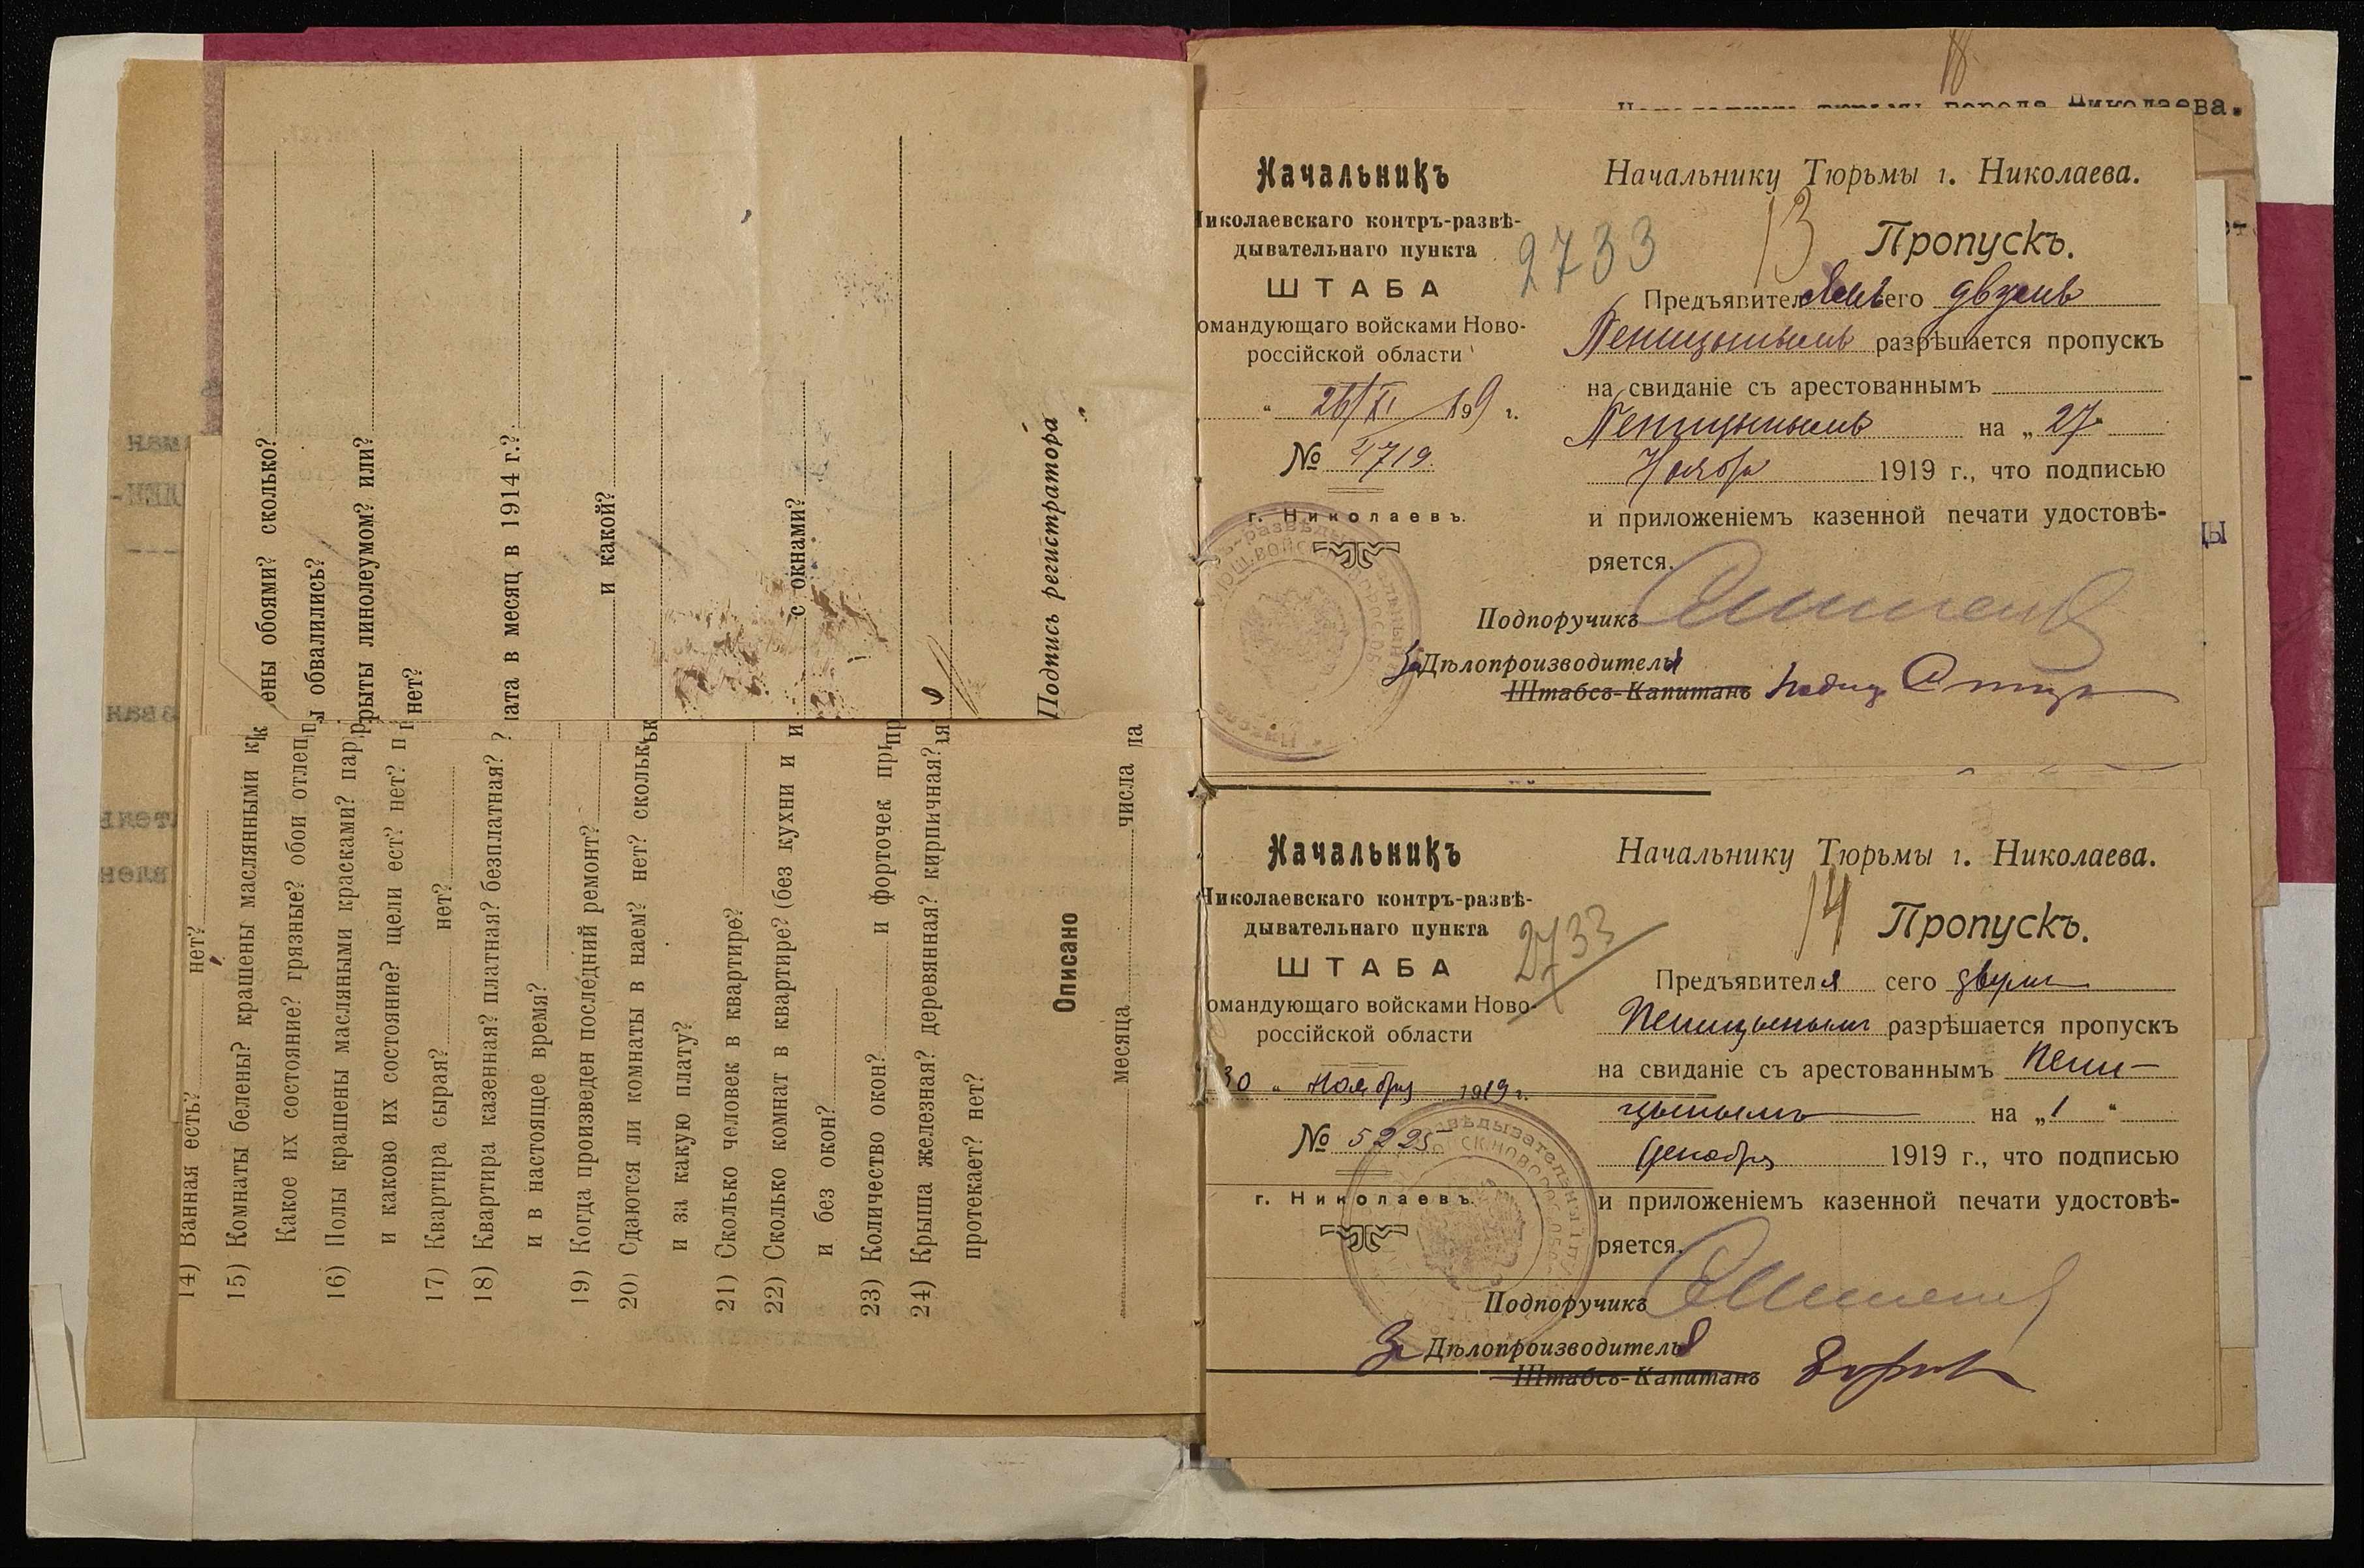 ены обоями? сколько?
ы обвалились?
рыты линолеумом? или?
нет?
ата в месяц в 1914 г.?
и какой?
с окнами?
Подпись регистратора
14) Ванная есть? нет?
15) Комнаты белены? крашены маслянными к
Какое их состояние? грязные? обои отлеп
16) Полы крашены маслянными красками? пар
и каково их состояние? щели ест? нет? п
17) Квартира сырая? нет?
18) Квартира казенная? платная? безплатная? ?
и в настоящее время?
19) Когда произведен последний ремонт?
20) Сдаются ли комнаты в наем? нет? сколько
и за какую плату?
21) Сколько человек в квартире?
22) Сколько комнат в квартире? (без кухни и
и без окон?
23) Количество окон? и форточек пр
24) Крыша железная? деревянная? кирпичная?
протекает? нет?
Описано
месяца числа
18
города Николаева.
Начальникъ
Николаевскаго контръ-развѣ-
дывательнаго пункта
ШТАБА
омандующаго войсками Ново-
россійской области
" 26/XI 1919 г.
№ 4719.
г. Николаевъ.
2733
13
Начальнику Тюрьмы г. Николаева.
Пропускъ.
Предъявителямъ сего двумъ
Пеницынымъ разрѣшается пропускъ
на свиданіе съ арестованнымъ
Пеницынымъ на „27"
Ноября 1919 г., что подписью
и приложеніемъ казенной печати удостовѣ-
ряется.
Подпоручикъ
За Дѣлопроизводителя
Штабсъ-Капитанъ
Начальникъ
Николаевскаго контръ-развѣ-
дывательнаго пункта
ШТАБА
омандующаго войсками Ново-
россійской области
30 " Ноября 1919 г.
№ 5225
г. Николаевъ.
2733
14
Начальнику Тюрьмы г. Николаева.
Пропускъ.
Предъявителя сего двумъ
Пеницынымъ разрѣшается пропускъ
на свиданіе съ арестованнымъ Пени-
цынымъ на „1"
Декабря 1919 г., что подписью
и приложеніемъ казенной печати удостовѣ-
ряется.
Подпоручикъ
За Дѣлопроизводителя
Штабсъ-Капитанъ